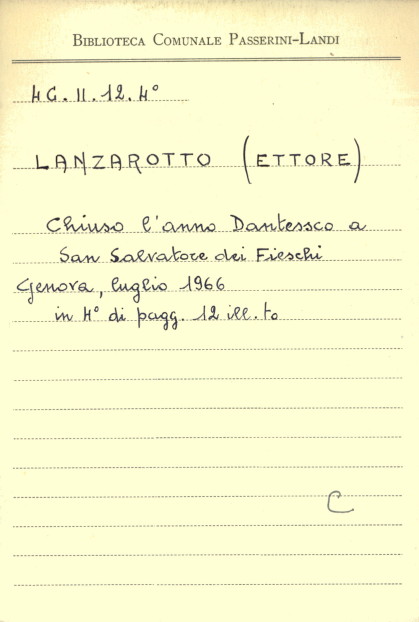 BIBLIOTECA COMUNALE PASSERINI-LANDI
4G.II.12.4°
LANZAROTTO (ETTORE)
Chiuso l'anno Dantessco a
San Salvatore dei Fieschi
Genova, luglio 1966
in 4° di pagg. 12 ill.to
C